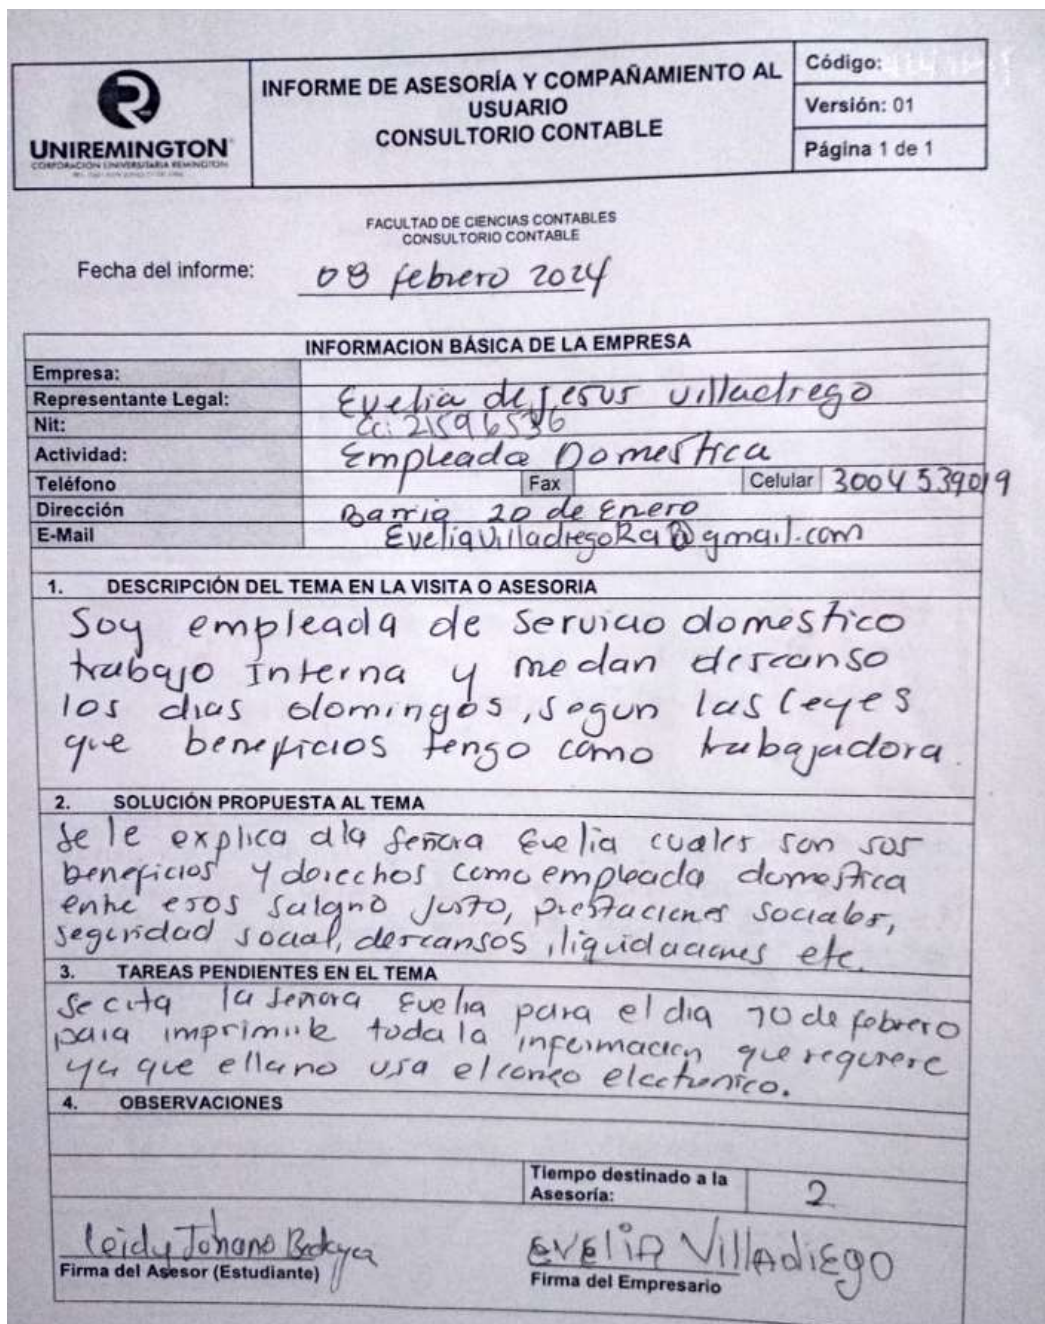 UNIREMINGTON
CORPORACIÓN UNIVERSITARIA REMINGTON
INFORME DE ASESORÍA Y COMPAÑAMIENTO AL
USUARIO
CONSULTORIO CONTABLE
Código:
Versión: 01
Página 1 de 1
FACULTAD DE CIENCIAS CONTABLES
CONSULTORIO CONTABLE
Fecha del informe: 08 febrero 2024
INFORMACION BÁSICA DE LA EMPRESA
Empresa:
Representante Legal: Evelia de Jesus villadiego
Nit: CC: 21596536
Actividad: Empleada Domestica
Teléfono Fax Celular 3004539019
Dirección Barrio 20 de Enero
E-Mail EveliaVilladiegoRa@gmail.com
1. DESCRIPCIÓN DEL TEMA EN LA VISITA O ASESORIA
Soy empleada de Servicio domestico
trabajo Interna y me dan descanso
los dias domingos, segun las leyes
que beneficios tengo como trabajadora.
2. SOLUCIÓN PROPUESTA AL TEMA
Se le explica a la señora Evelia cuales son sus
beneficios y derechos como empleada domestica
entre esos salario justo, prestaciones sociales,
seguridad social, descansos, liquidaciones etc.
3. TAREAS PENDIENTES EN EL TEMA
Se cita la señora Evelia para el dia 10 de febrero
para imprimirle toda la informacion que requiere
ya que ella no usa el correo electronico.
4. OBSERVACIONES
Tiempo destinado a la
Asesoría: 2
Leidy Johana
Firma del Asesor (Estudiante)
EVELIA VillADiEGO
Firma del Empresario